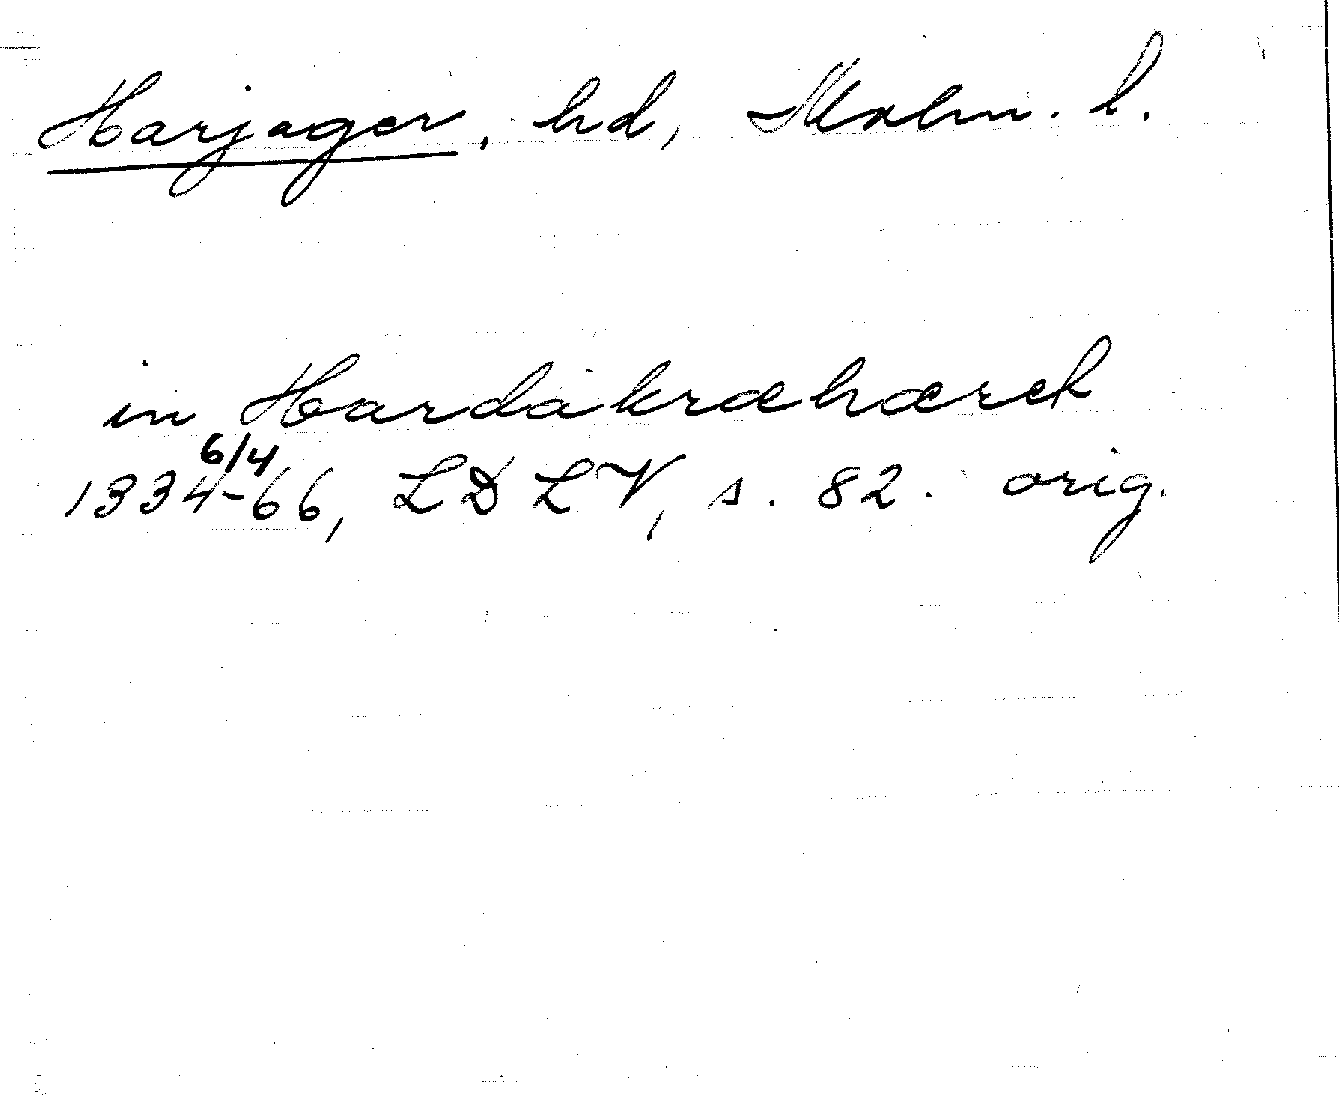 Harjager, hd, Malm. l.
in Hardakræhæreth
6/4
1334-66, LDLV, s. 82. orig.